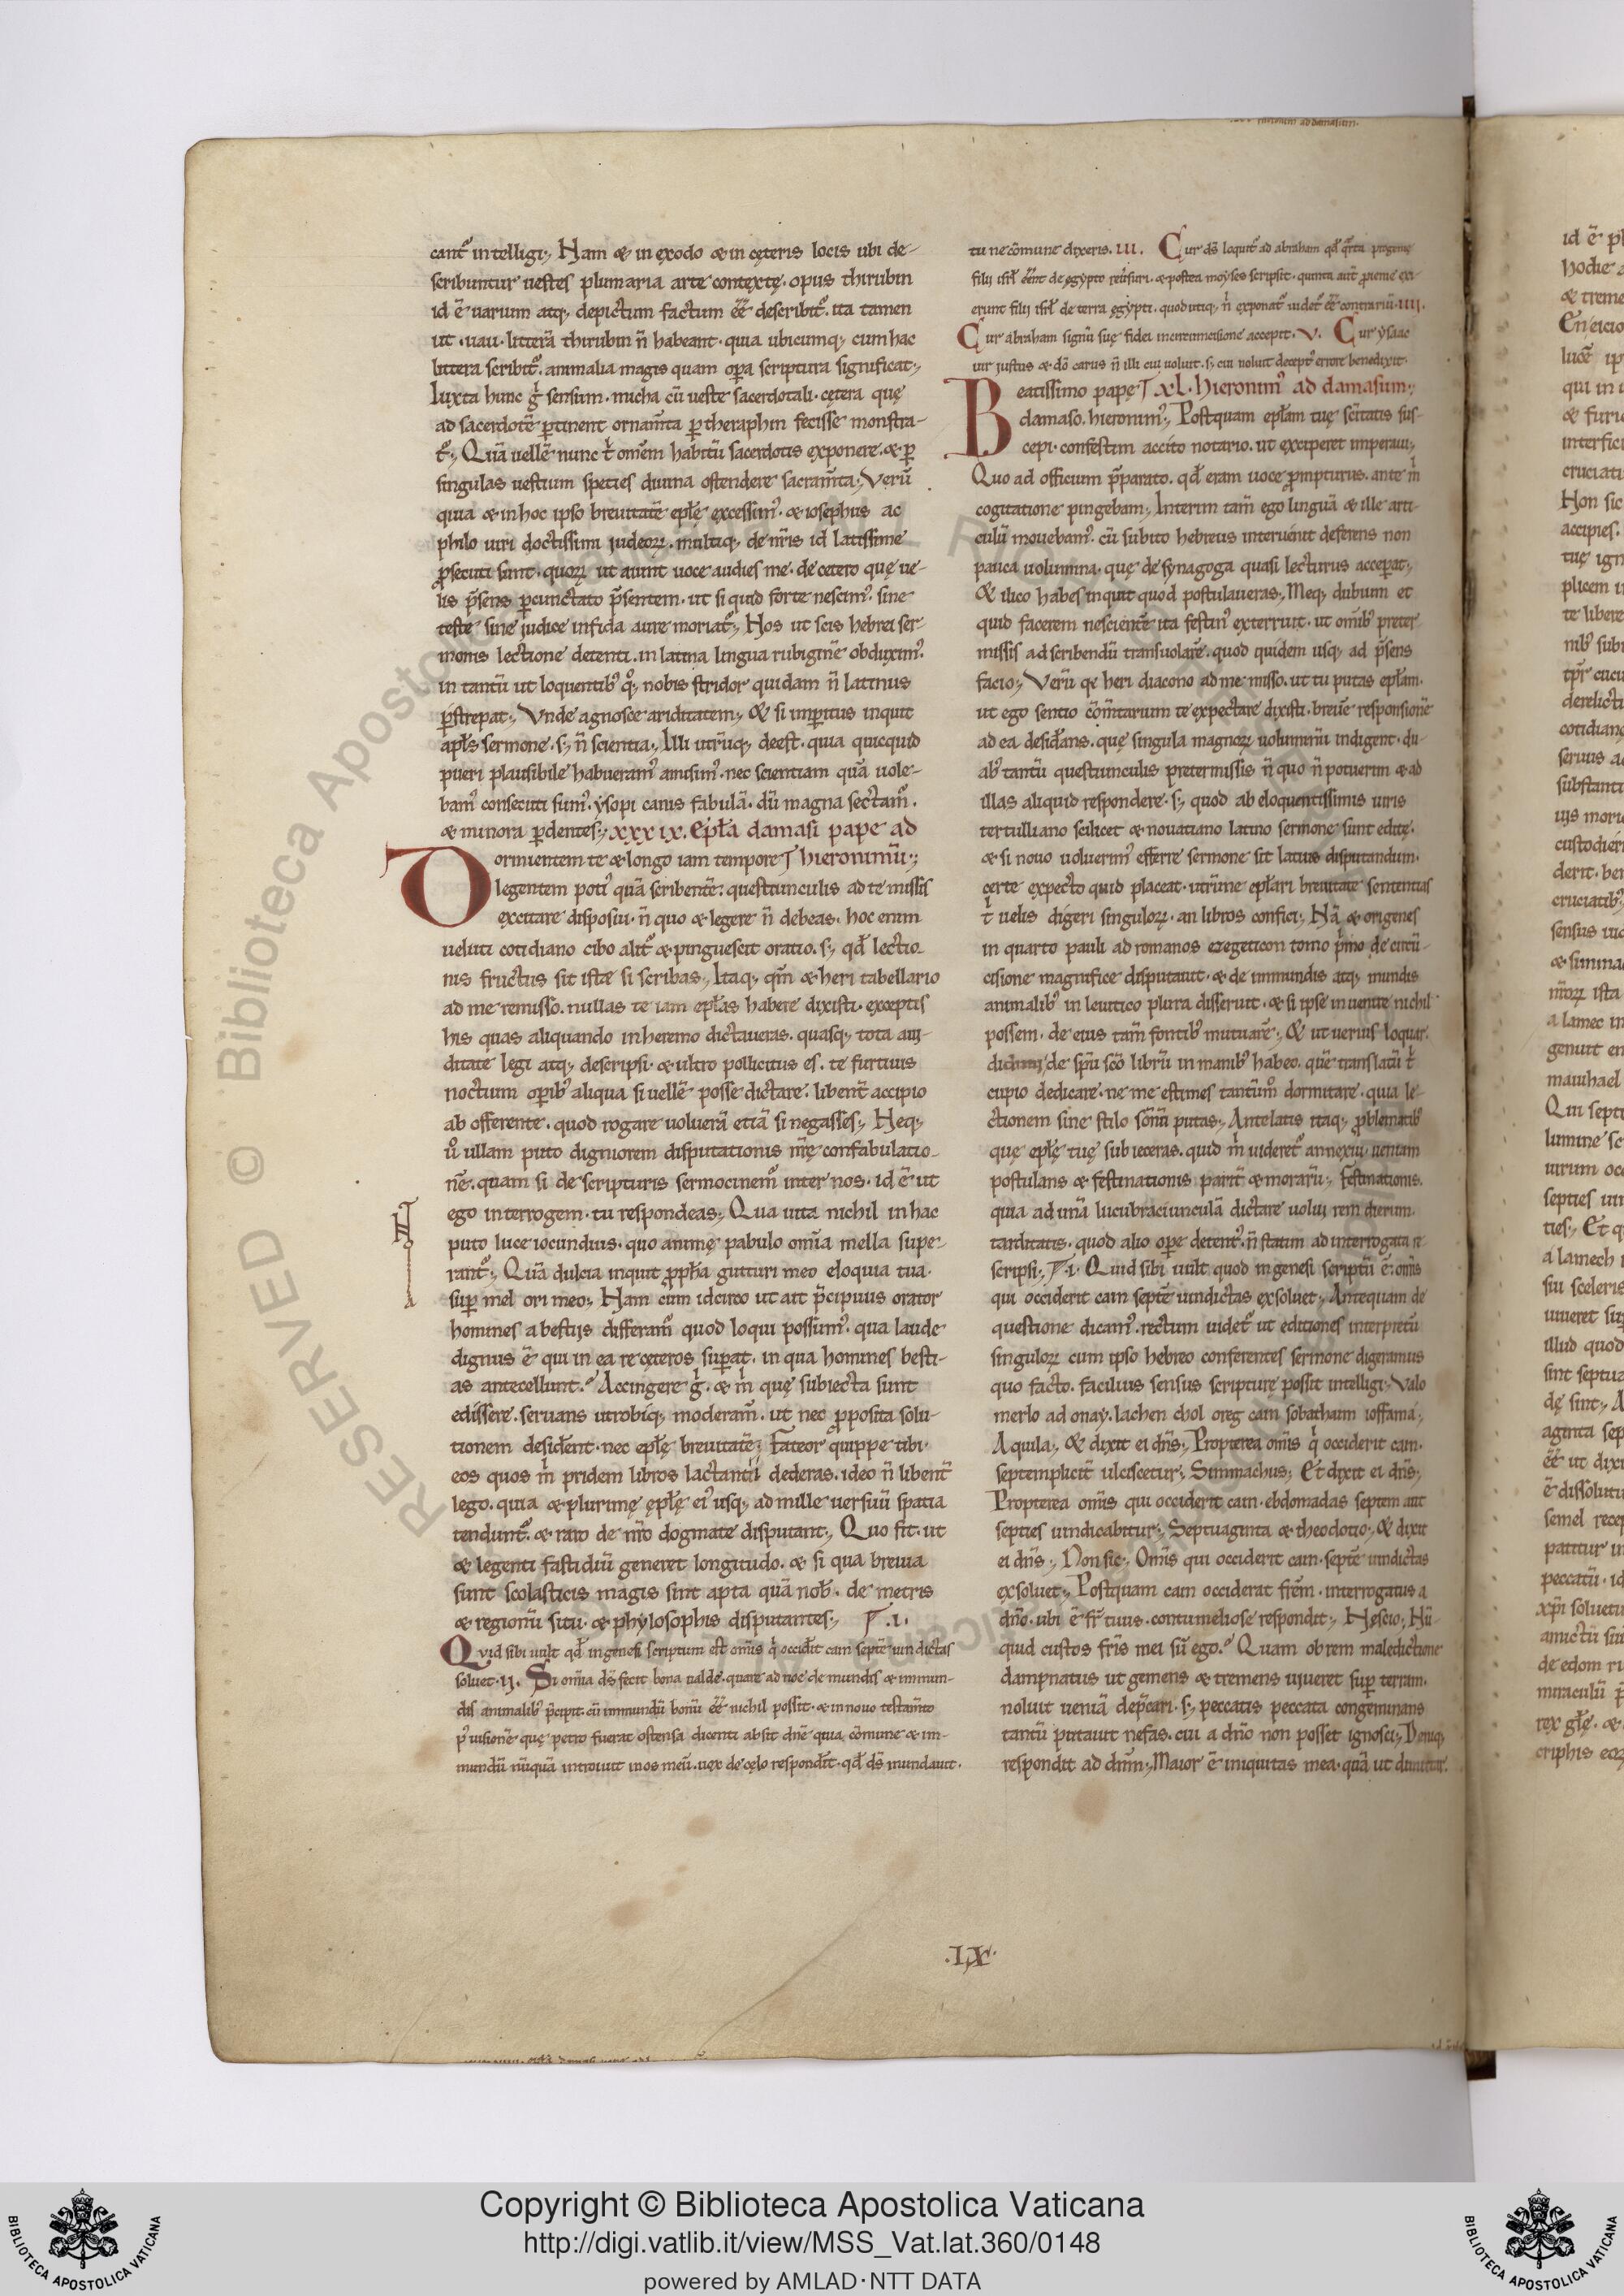 cant᷒ intelligi; Nam & in exodo & in cęteris locis ubi de-
scribuntur uestes plumaria arte contextę. opus thirubin
id ē uarium atq; depictum factum eē̄ describit᷒. ita tamen
ut .uau. litterā thirubin n̄ habeant. quia ubicumq; cum hac
littera scribit᷒. animalia magis quam oꝑa scriptura significat;
Iuxta hunc g̊ sensum. micha cū ueste sacerdotali. cętera quę
ad sacerdotē ꝑtinent ornam̄ta ꝑ theraphin fecisse monstra-
t᷒; Quā uellē nunc t̊ omēm habitū sacerdotis exponere. & ꝑ
singulas uestium species diuina ostendere sacram̄ta; Verū
quia & in hoc ipso breuitatē epłę excessim᷒. & iosephus ac
philo uiri doctissimi judeoꝝ. multiq; de nr̄is id latissime
ꝓsecuti sunt. quoꝝ ut aiunt uoce audies me. de cetero quę ue-
lis p̄sens ꝑcunctato p̄sentem. ut si quid forte nescim᷒. sine
teste sine judice infida aure moriat᷒; Nos ut scis hebrei ser-
monis lectione detenti. in latina lingua rubiginē obduxim᷒.
in tantū ut loquentib᷒ q᷒q; nobis stridor quidam n̄ latinus
ꝑstrepat; Vnde agnosce ariditatem; & si imꝑitus inquit
apłs sermone. s; n̄ scientia; Illi utrūq; deest. quia quicquid
pueri plausibile habueram᷒ amisim᷒. nec scientiam quā uole-
bam᷒ consecuti sum᷒. ysopi canis fabulā. dū magna sectam᷒.
& minora ꝑdentes; xxxix. Epła damasi pape ad
Dormientem te & longo iam tempore hieronimū;
legentem poti᷒ quā scribentē: questiunculis ad te missis
excitare disposui. n̄ quo & legere n̄ debeas. hoc enim
ueluti cotidiano cibo alit᷒ & pinguescit oratio. s; qđ lectio-
nis fructus sit iste si scribas; Itaq; qm̄ & heri tabellario
ad me remisso. nullas te iam epłas habere dixisti. exceptis
his quas aliquando in heremo dictaueras. quasq; tota aui-
ditate legi atq; descripsi. & ultro pollicitus es. te furtiuis
noctium oꝑib᷒ aliqua si uellē posse dictare. libent̄ accipio
ab offerente. quod rogare uoluerā etiā si negasses; Neq;
u᷒ ullam puto digniorem disputationis nr̄ę confabulatio-
nē. quam si de scripturis sermocinem᷒ inter nos. id ē ut
ego interrogem. tu respondeas; Qua uita nichil in hac
puto luce iocundius. quo animę pabulo om̄ia mella supe-
rant᷒; Quā dulcia inquit ꝓppħa gutturi meo eloquia tua.
suꝑ mel ori meo; Nam cum idcirco ut ait p̄cipuus orator
homines a bestijs differam᷒ quod loqui possim᷒. qua laude
dignus ē qui in ea re cęteros suꝑat. in qua homines besti-
as antecellunt? Accingere g̊. & m̊ quę subiecta sunt
edissere. seruans utrobiq; moderam̄. ut nec ꝓposita solu-
tionem desiđent. nec epłę breuitatē; Fateor quippe tibi.
eos quos m̊ pridem libros lactantii dederas. ideo n̄ libent̄
lego. quia & plurimę ępłę ei᷒ usq; ad mille uersuū spatia
tendunt᷒. & raro de nr̄o dogmate disputant; Quo fit. ut
& legenti fastidiū generet longitudo. & si qua breuia
sunt scolasticis magis sint apta quā nob̄. de metris
& regionū situ. & phylosophis disputantes; .i.
Quid sibi uult qđ in genesi scriptum est om̄is q̊ occiđit cain septē uindictas
soluet. ii. Si om̄ia ds̄ fecit bona ualde. quare ad noe de mundis & immun-
dis animalib᷒ p̄cipit. cū immundū bonū eē̄ nichil possit. & in nouo testam̄to
p᷒ uisionē quę petro fuerat ostensa dicenti absit dn̄e quia cōmune & im-
mundū nūquā introiuit in os meū. uox de cęlo respondit. qđ ds̄ mundauit.
tu ne cōmune dixeris. iii. Cur ds̄ loquit᷒ ad abraham qđ q̄rta ꝓgenie
filij isrł eēnt de egypto reūsuri. & postea moyses scripsit. quinta aut̄ ꝓgenie exi-
erunt filij isrł de terra egypti. quod utiq; n̄ exponat᷒ uidet᷒ eē̄ contrariū. iiii.
Cur abraham signū suę fidei in circumcisione accepit. V. Cur ysaac
uir justus & dō carus n̄ illi cui uoluit. s; cui noluit decept᷒ errore benedixit.
Beatissimo pape xl. hieronim᷒ ad damasum;
damaso. hieronim᷒; Postquam epłam tuę scītatis sus-
cepi. confestim accito notario. ut exciperet imperaui;
Quo ad officium p̄parato. qđ eram uoce ꝓmpturus. ante m̊
cogitatione pingebam; Interim tam̄ ego linguā & ille arti-
culū mouebam᷒. cū subito hebreus interuenit deferens non
pauca uolumina. quę de synagoga quasi lecturus acceꝑat;
& ilico habes inquit quod postulaueras; Meq; dubium et
quid facerem nescientē ita festin᷒ exterruit. ut om̄ib᷒ preter
missis ad scribendū transuolarē. quod quidem usq; ad p̄sens
facio; Verū qe heri diacono ad me misso. ut tu putas epłam.
ut ego sentio cōm̄tarium te expectare dixisti. breuē responsionē
ad ea desiđans. quę singula magnoꝝ uoluminū indigent. du-
ab᷒ tantū questiunculis pretermissis n̄ quo n̄ potuerim & ad
illas aliquid respondere. s; quod ab eloquentissimis uiris
tertulliano scilicet & nouatiano latino sermone sunt editę.
& si nouo uoluerim᷒ efferre sermone sit latius disputandum.
certe expecto quid placeat. utrūne epłari breuitate sententias
t̊ uelis digeri singuloꝝ. an libros confici; Nā & origenes
in quarto pauli ad romanos exegeticon tomo p̊mo de circū-
cisione magnifice disputauit. & de immundis atq; mundis
animalib᷒ in leuitico plura disseruit. & si ipse inuenire nichil
possem. de eius tam̄ fontib᷒ mutuarē; & ut uerius loquar.
de sp̄u sc̄o librū in manib᷒ habeo. quē translatū t̊
cupio dedicare. ne me estimes tantūm᷒ dormitare. quia le-
ctionem sine stilo som̄ū putas; Antelatis itaq; ꝓblematib᷒
que epłę tuę subieceras. quid m̊ uideret᷒ annexui. ueniam
postulans & festinationis parit̄ & morarū; festinationis.
quia ad unā lucubraciunculā dictare uolui rem dierum.
tarditatis. quod alio oꝑe detent᷒. n̄ statim ad interrogata re
scripsi; .i. Quid sibi uult. quod in genesi scriptū ē. om̄is
qui occiderit cain septē uindictas exsoluet; Antequam de
questione dicam᷒. rectum uidet᷒ ut editiones interpretū
singuloꝝ cum ipso hebreo conferentes sermone digeramus
quo facto. facilius sensus scripturę possit intelligi. Valo
merlo ad onay. lachen chol oreg cain sobathaim ioffama;
Aquila; & dixit ei dn̄s; Propterea om̄is q̊ occiderit cain.
septemplicit̄ ulciscetur; Simmachus; Et dixit ei dn̄s;
Propterea om̄is qui occiderit cain. ebdomadas septem aut
septies uindicabitur; Septuaginta & theodotio; & dixit
ei dn̄s; Non sic; Om̄is qui occiderit cain. septē uindictas
exsoluet; Postquam cain occiderat frēm. interrogatus a
dn̄o. ubi ē fr̄ tuus. contumeliose respondit; Nescio; Nū-
quid custos fr̄is mei sū ego? Quam ob rem maledictione
dampnatus ut gemens & tremens uiueret suꝑ terram.
noluit ueniā dep̄cari. s; peccatis peccata congeminans
tantū putauit nefas. cui a dn̄o non posset ignosci; Deniq;
respondit ad dn̄m; Maior ē iniquitas mea. quā ut dimittar.
.IX.
Copyright © Biblioteca Apostolica Vaticana
http://digi.vatlib.it/view/MSS_Vat.lat.360/0148
powered by AMLAD·NTT DATA
BIBLIOTECA APOSTOLICA VATICANA
BIBLIOTECA APOSTOLICA VATICANA